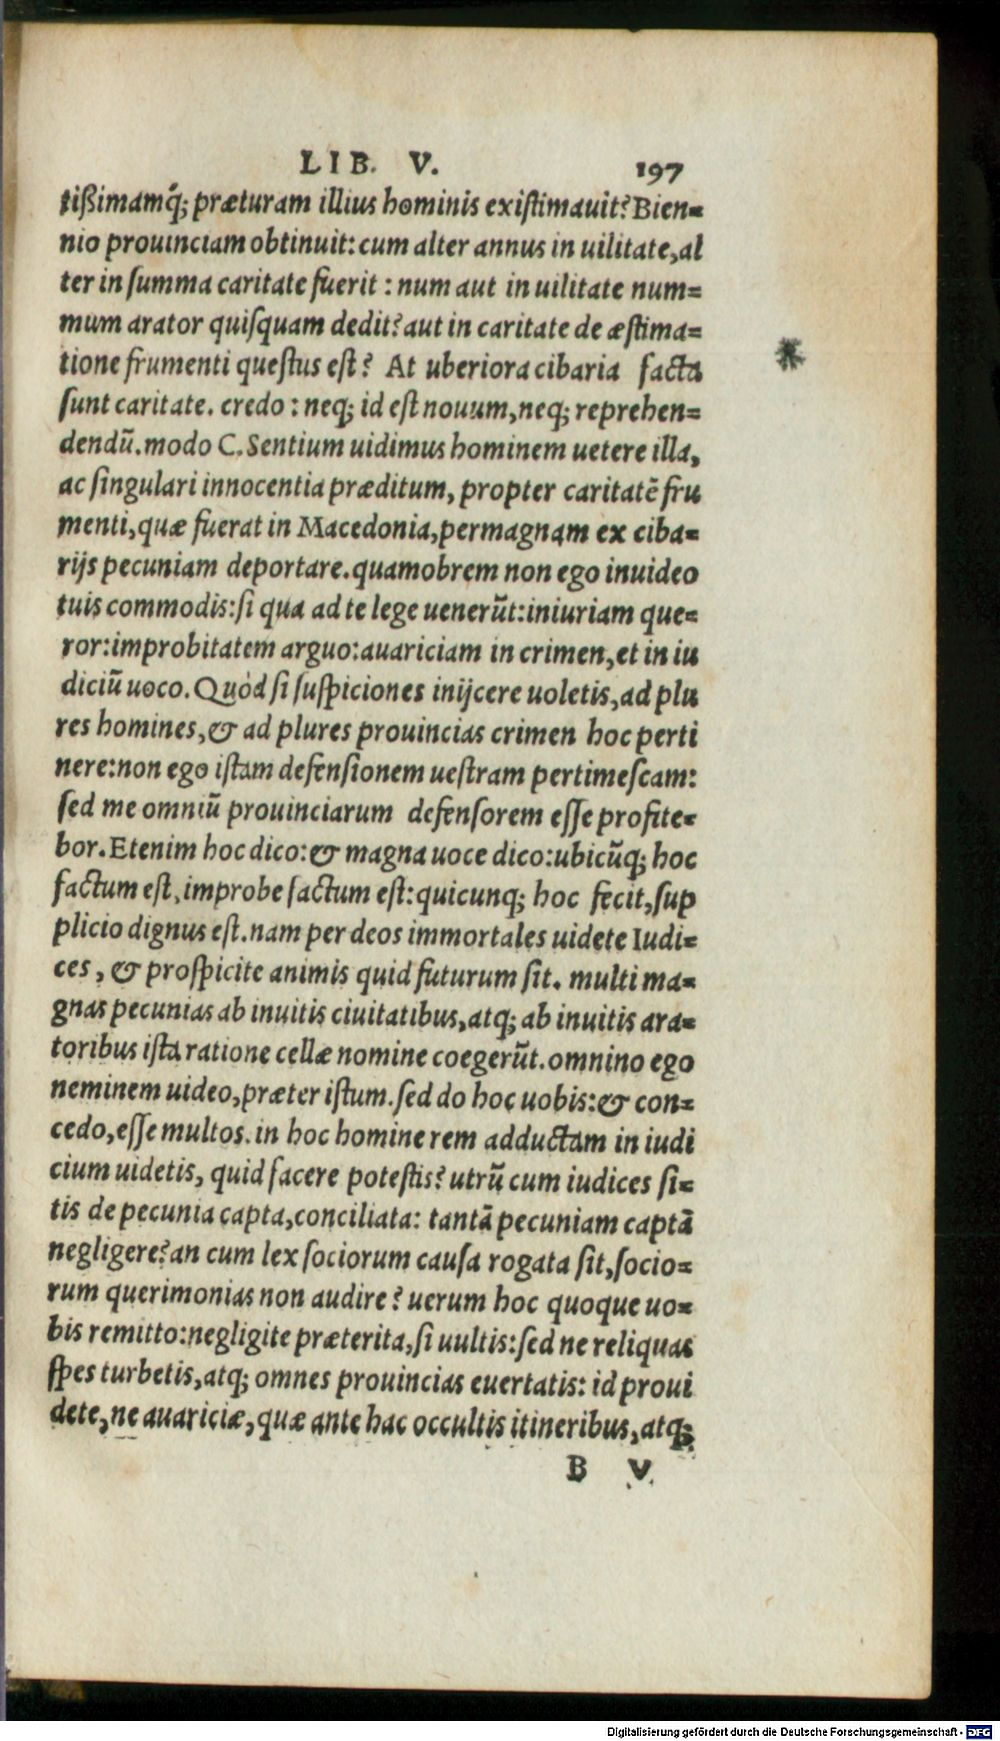 LIB. V. 197
tißimamq́; præturam illius hominis existimauit? Bien=
nio prouinciam obtinuit: cum alter annus in uilitate, al
ter in summa caritate fuerit : num aut in uilitate num=
mum arator quisquam dedit? aut in caritate de æstima=
tione frumenti questus est? At uberiora cibaria facta
sunt caritate. credo : neq; id est nouum, neq; reprehen=
dendũ. modo C. Sentium uidimus hominem uetere illa,
ac singulari innocentia præditum, propter caritatẽ fru
menti, quæ fuerat in Macedonia, permagnam ex ciba=
rijs pecuniam deportare. quamobrem non ego inuideo
tuis commodis: si qua ad te lege uenerũt: iniuriam que=
ror: improbitatem arguo: auariciam in crimen, et in iu
diciũ uoco. Quòd si suspiciones inijcere uoletis, ad plu
res homines, & ad plures prouincias crimen hoc perti
nere: non ego istam defensionem uestram pertimescam:
sed me omniũ prouinciarum defensorem esse profite=
bor. Etenim hoc dico: & magna uoce dico: ubicũq; hoc
factum est, improbe factum est: quicunq; hoc fecit, sup
plicio dignus est. nam per deos immortales uidete Iudi=
ces, & prospicite animis quid futurum sit. multi ma=
gnas pecunias ab inuitis ciuitatibus, atq; ab inuitis ara=
toribus ista ratione cellæ nomine coegerũt. omnino ego
neminem uideo, præter istum. sed do hoc uobis: & con=
cedo, esse multos. in hoc homine rem adductam in iudi
cium uidetis, quid facere potestis? utrũ cum iudices si=
tis de pecunia capta, conciliata: tantã pecuniam captã
negligere? an cum lex sociorum causa rogata sit, socio=
rum querimonias non audire? uerum hoc quoque uo=
bis remitto: negligite præterita, si uultis: sed ne reliquas
spes turbetis, atq; omnes prouincias euertatis: id proui
dete, ne auariciæ, quæ ante hac occultis itineribus, atq;
B V
Digitalisierung gefördert durch die Deutsche Forschungsgemeinschaft - DFG